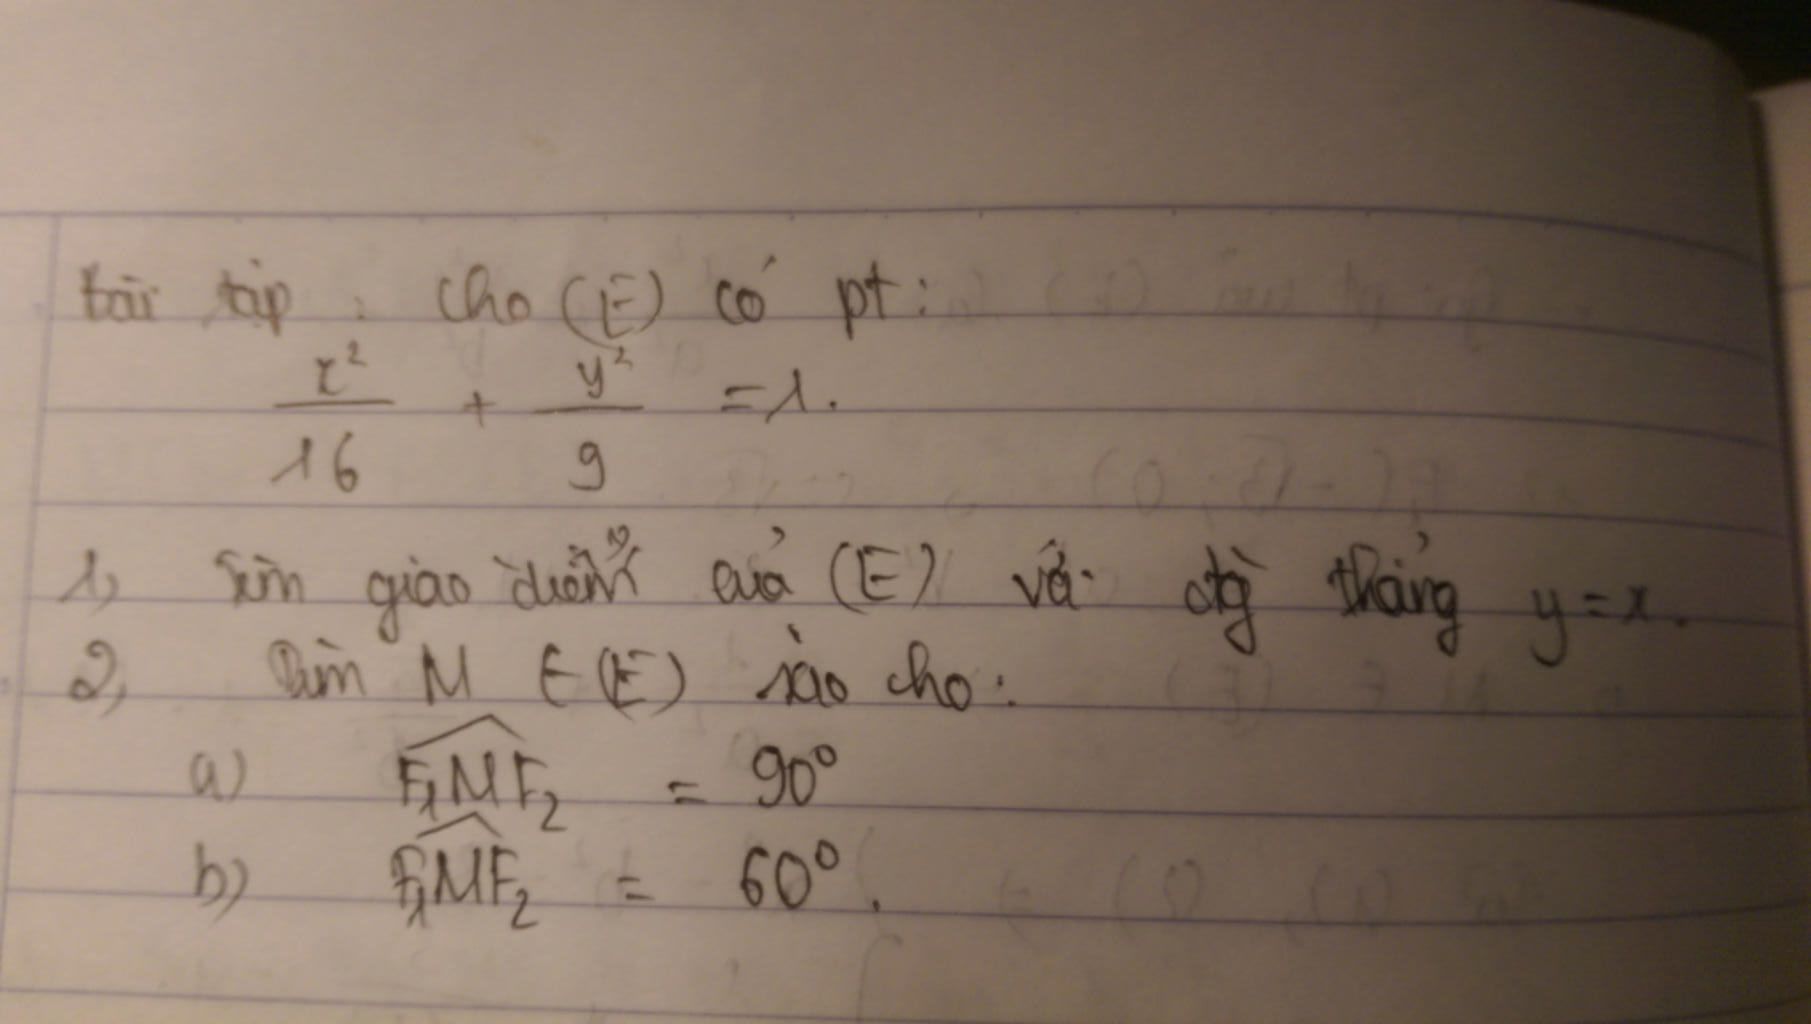 bài tập : cho (E) có pt:
x²/16 + y²/9 = 1.
1, Tìm giao điểm của (E) và đg thẳng y = x.
2, Tìm M ∈ (E) sao cho:
a) F₁MF₂ = 90°
b) F₁MF₂ = 60°.